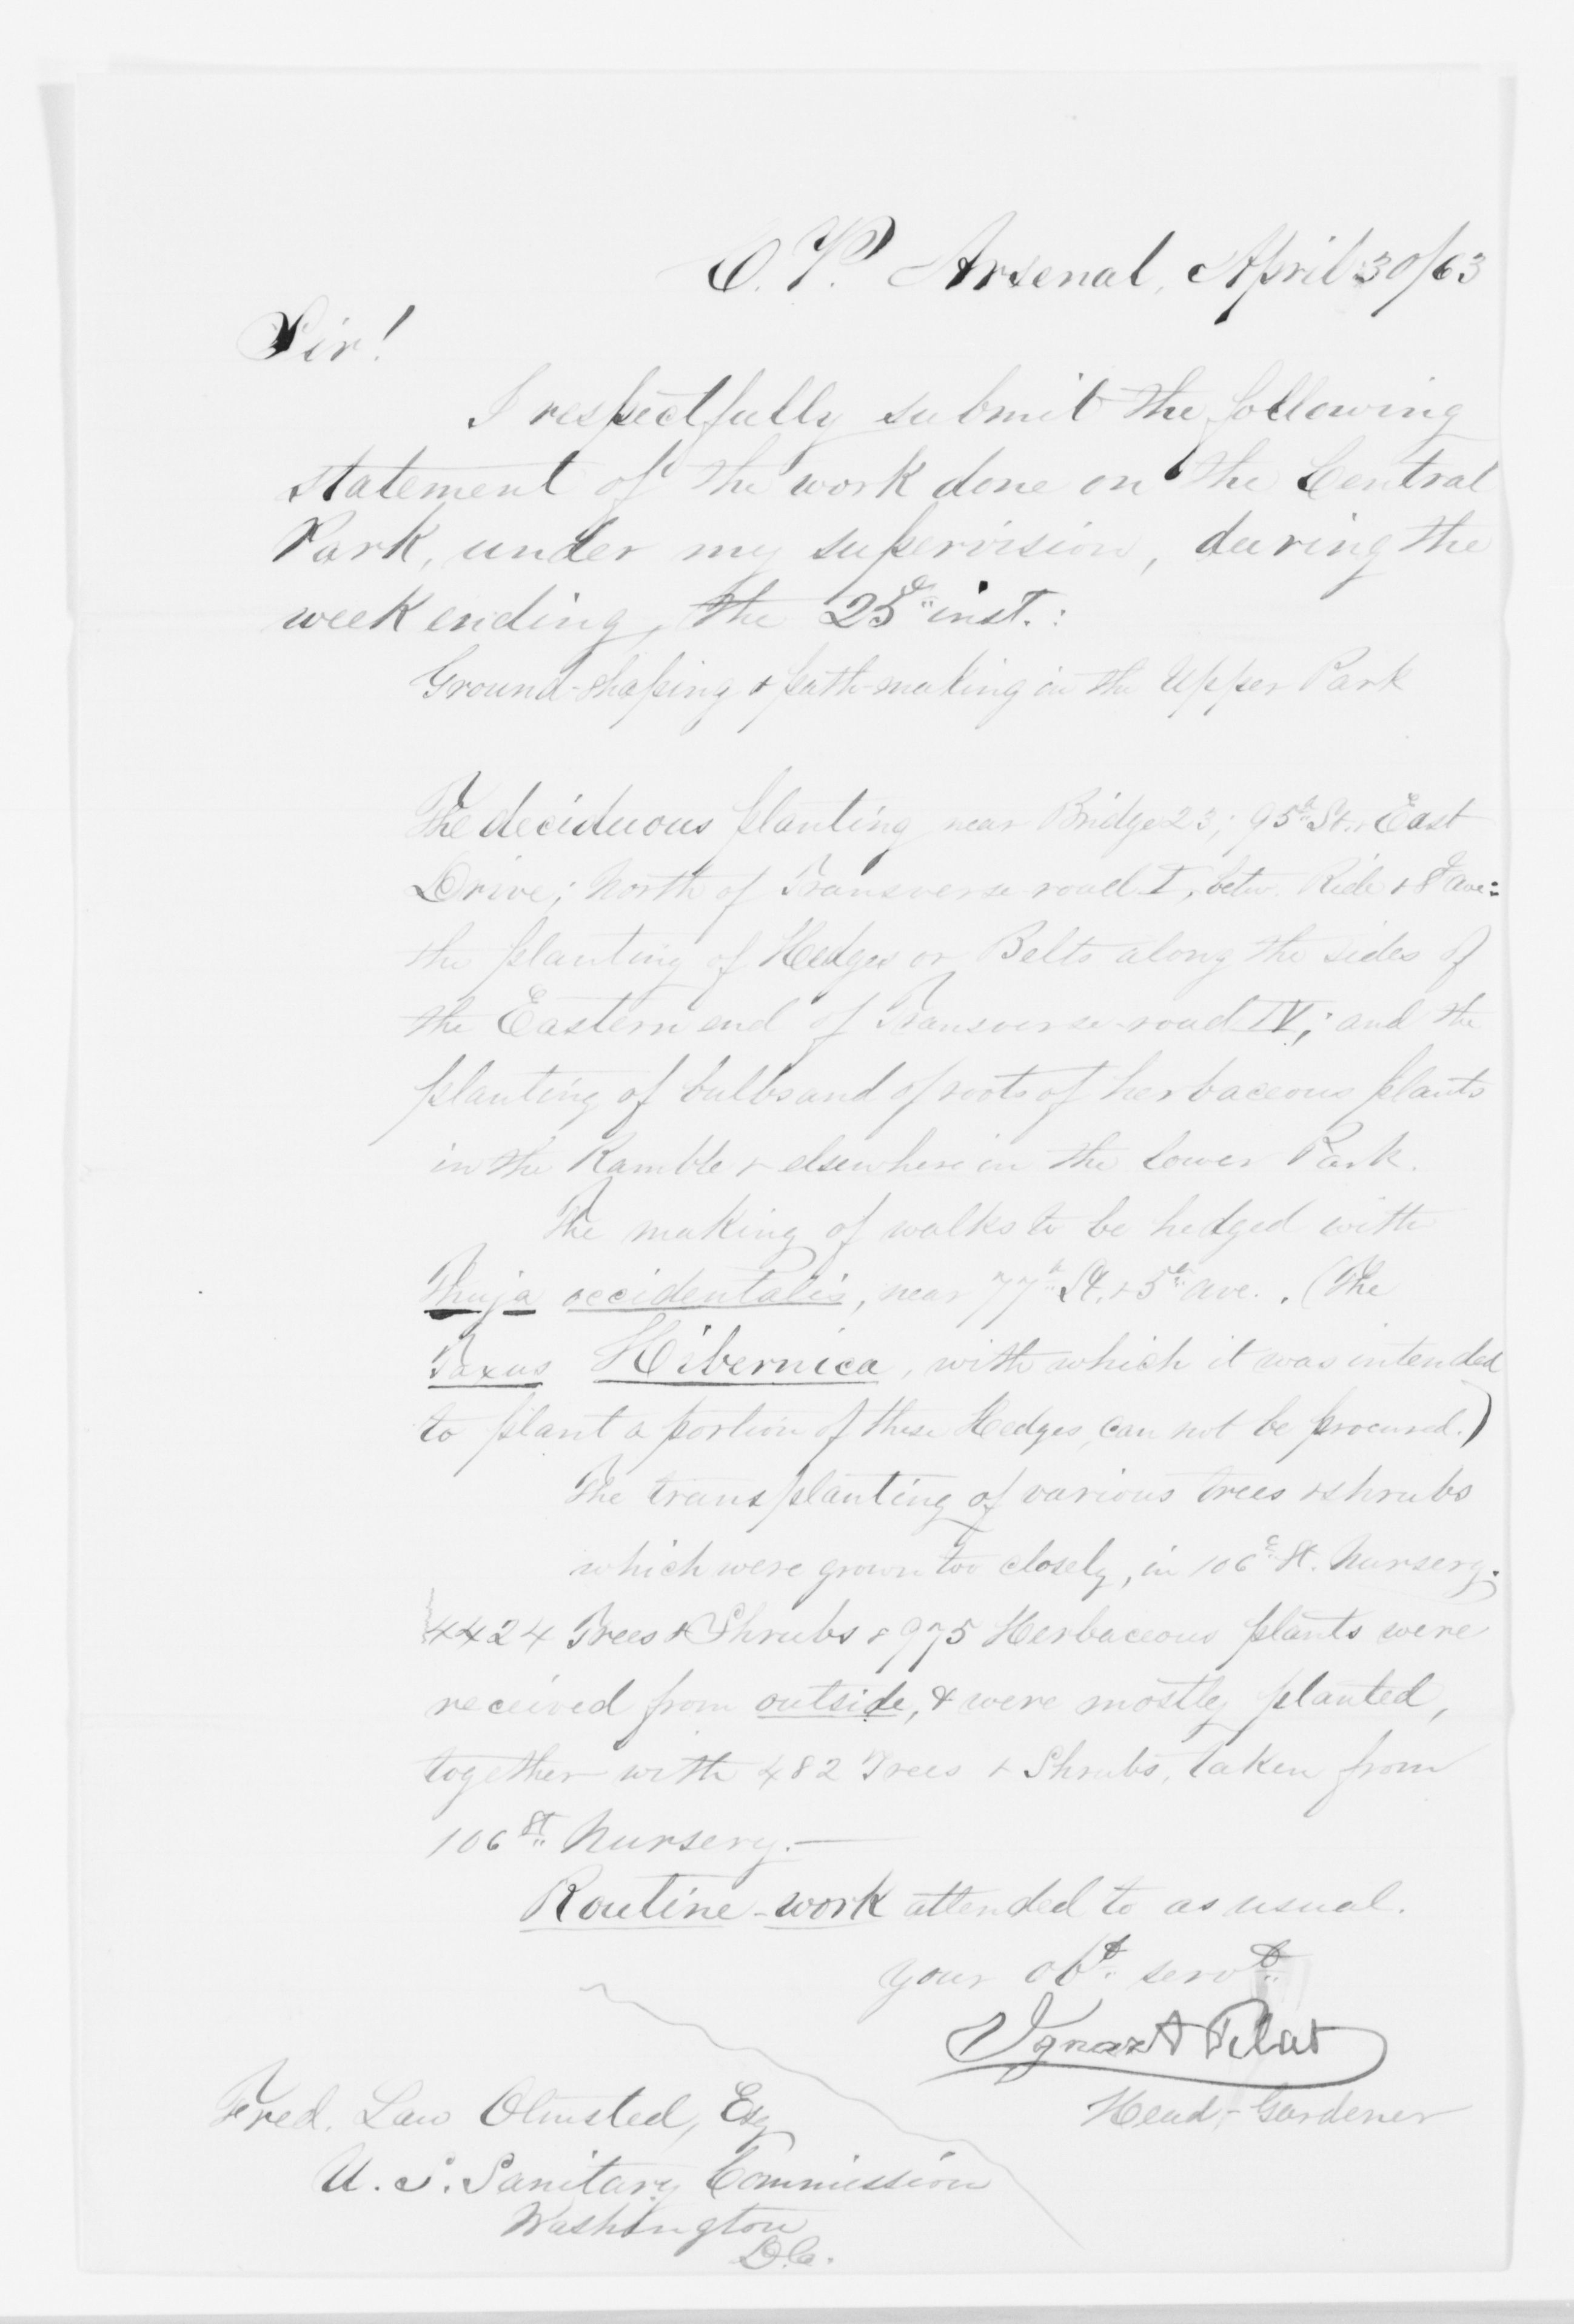 C. P. Arsenal, April 30/63
Sir!
I respectfully submit the following
statement of the work done on the Central
Park, under my supervision, during the
week ending, the 25th inst.:
Ground-shaping & path-making in the Upper Park
The deciduous planting near Bridge 23; 95th St. & East
Drive; North of Transverse-road I, betw. Ride & 8th ave:
the planting of Hedges or Belts along the sides of
the Eastern end of Transverse-road IV; and the
planting of bulbs and of roots of herbaceous plants
in the Ramble & elsewhere in the Lower Park.
The making of walks to be hedged with
Thuja occidentalis, near 77th St. & 5th ave.. (The
Taxus Hibernica, with which it was intended
to plant a portion of these Hedges, can not be procured.)
The transplanting of various trees & shrubs
which were grown too closely, in 106th St. Nursery.
4424 Trees & Shrubs & 975 Herbaceous plants were
received from outside, & were mostly planted,
together with 482 Trees & Shrubs, taken from
106 St. Nursery.—
Routine-work attended to as usual.
Your obt. servt.
Ignaz A Pilat
Head-Gardener
Fred. Law Olmsted, Esq
U. S. Sanitary Commission
Washington
D.C.